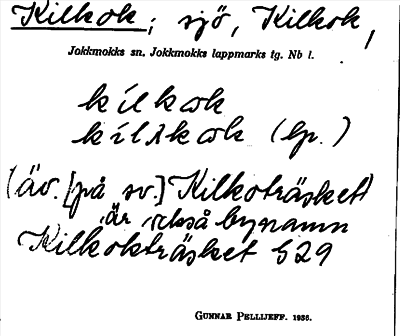 Kilkok; sjö, Kilkok,
Jokkmokks sn. Jokkmokks lappmarks tg. Nb l.
kilkok
kilkok (lp.)
(äv. [på sv.] Kilkoträsket)
är också bynamn
Kilkokträsket 529
GUNNAR PELLIJEFF. 1936.